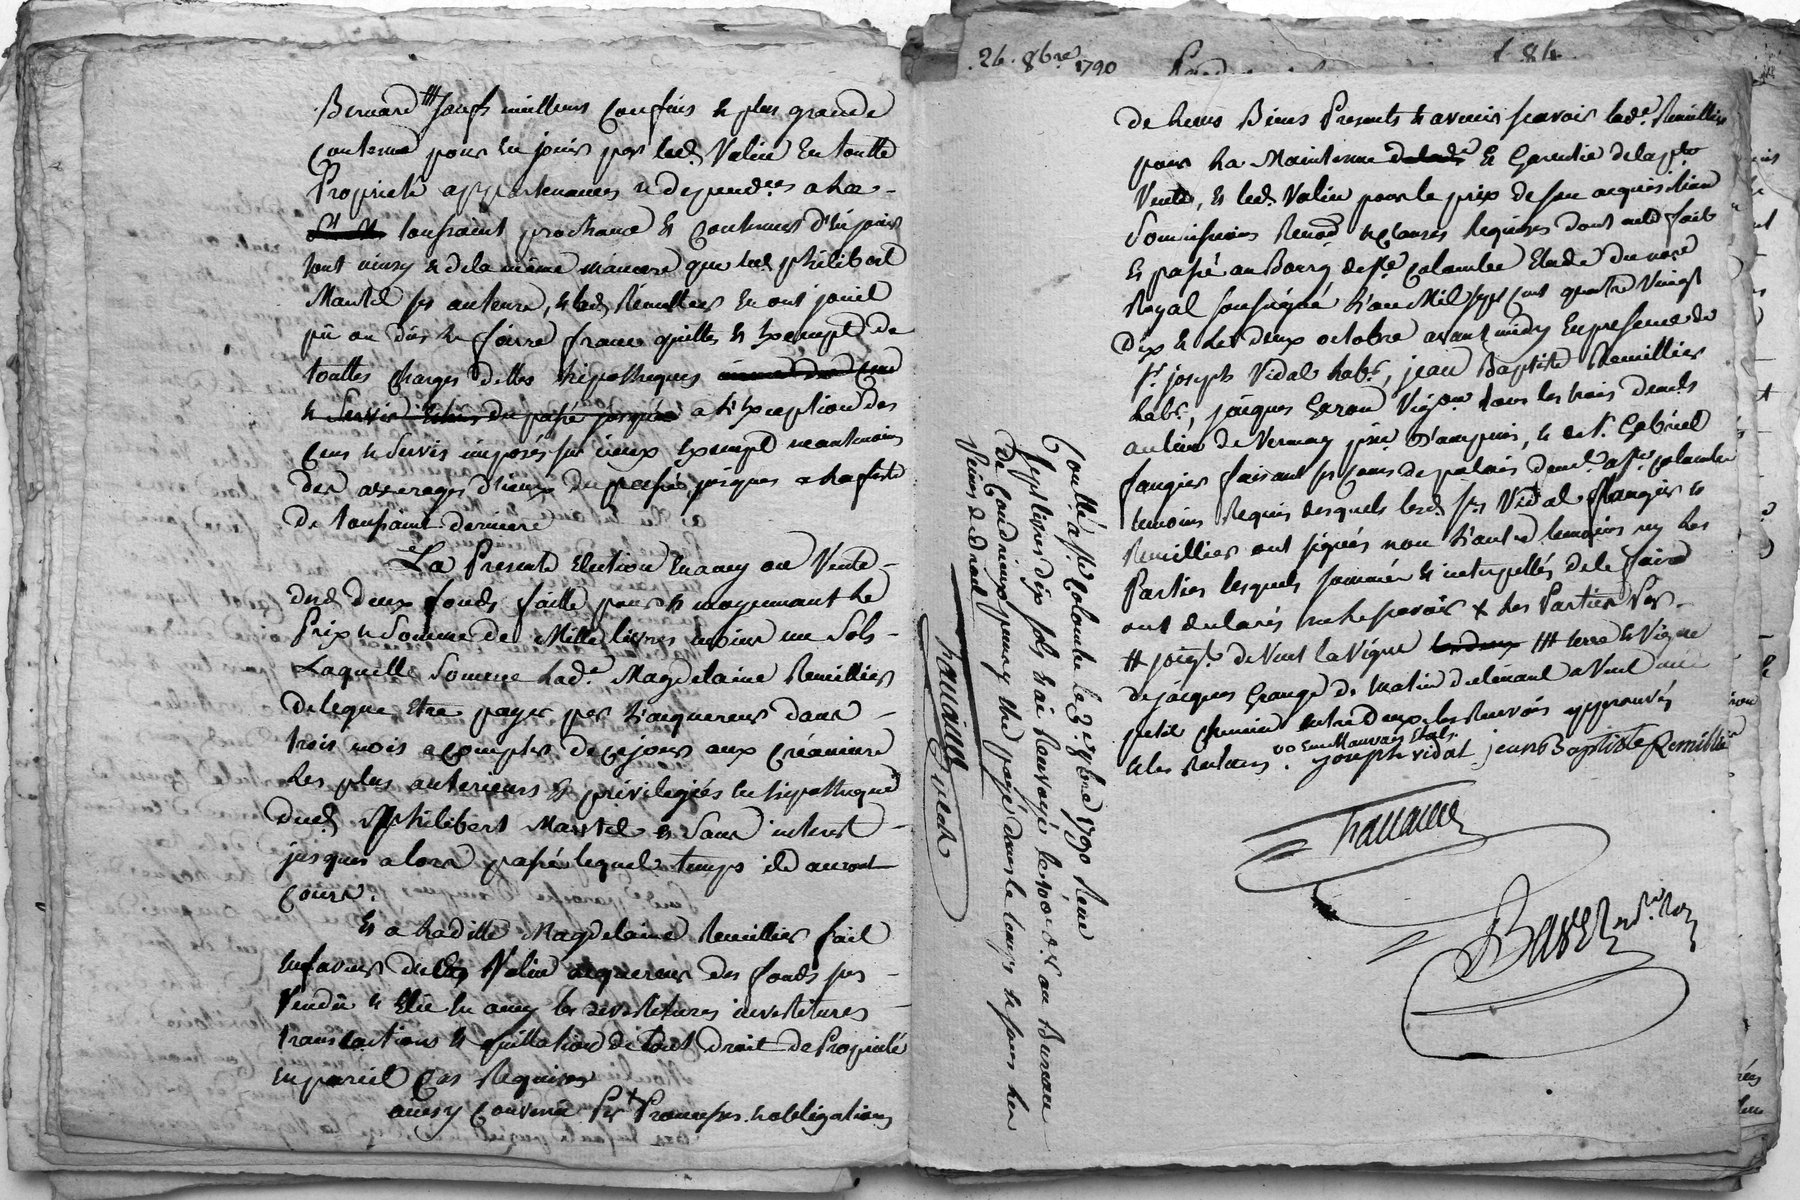 Bernard ## saufs meilleurs confins & plus grande
contenue pour en jouir par led. Valin en toutte
Proprieté appartenances & dependces a la
toussaint prochaine & continuer d'en jouir
tout ainsy & de la même maniere que led. philibert
Martel ses auteurs, & lad. Remillier en ont jouit
pû ou dûs le faire franc quitte & Exempt de
touttes charges dettes hipotheques
& servis du passé jusques a l'Exception des
cens & servis imposés sur iceux Exempt neantmoins
des arrerages d'iceux du passé jusques a la feste
de toussaint derniere
La Presente Election En amy ou Vente
desd. deux fonds faitte pour & moyennant le
Prix & Somme de Mille livres moins un Sols
Laquelle Somme lad.e Magdelaine Remillier
delegue Etre payer par l'acquereur dans
trois mois a compter de ce jour aux Créanciers
les plus anterieurs & privilegiés en hipotheque
dud. Philibert Martel & Sans interest
jusques alors passé lequel temps ils auront
cours.
Et a laditte Magdelaine Remillier fait
en faveur dud. Valin acquereur des fonds par
Vendû & Elû en amy les devestitures investitures
translactions & quittation de tout droit de Propriété
en pareil Cas Requises
ainsy convenu Par + Promesses & obligations
26. 8bre 1790
84
de leurs Biens Presents & avenir scavoir lad.e Remillier
pour la Maintenue & Garentie de la pnte
Vente, & led. Valin pour le prix de son acquisition
Soumissions Renon & clauses Requises dont acte fait
& passé au Bourg de Ste Colombe Etude du nore
Royal soussigné l'an Mil sept cent quatre Vingt
dix & le deux octobre avant midy En presence de
Sr joseph Vidal habt, jean Baptiste Remillier
habt, jacques Vigon tous les trois demts
au lieu de Vernay psse d'ampuis, & de Sr. Gabriel
faugier faisant ses cours de palais demt a Ste colombe
temoins Requis desquels lesd. Srs Vidal faugier &
Remillier ont signés non l'autre temoins ny les
Parties lesquels sommés & interpellés de le faire
ont declarés ne le scavoir + les Parties Par
# joigt. de Vent la Vigne ### terre & Vigne
de jacques Grange de Matin declinant a Vent un
petit chemin entre deux les Renvois approuvés
& les Ratures.
joseph vidal jean Baptiste Remillier
Chavanne
nre Roy
Contollé a Ste Colombe le 3e 8bre 1790 Reçu
Sept livres dix sols sauf Renvoyé le 100e d. au Bureau
de Condrieux pour y Etre payé dans le temps le sous les
Peines de droit
Chavanne